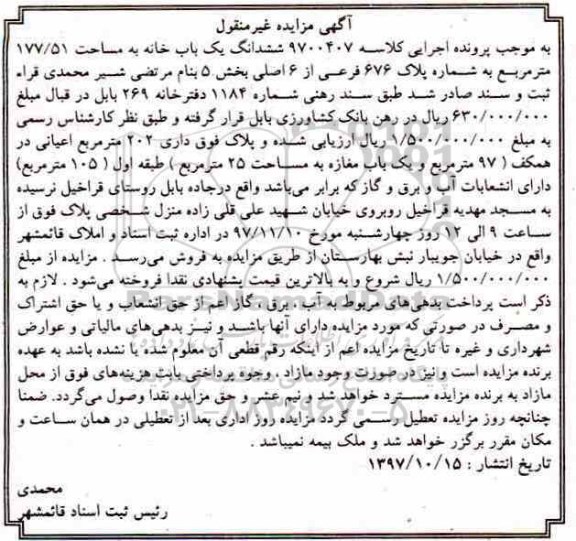 آگهی مزایده غیرمنقول
به موجب پرونده اجرایی کلاسه ۹۷۰۰۴۰۷ ششدانگ یک باب خانه به مساحت ۱۷۷/۵۱
مترمربع به شماره پلاک ۶۷۶ فرعی از ۶ اصلی بخش ۵ بنام مرتضی شیر محمدی قراء
ثبت و سند صادر شد طبق سند رهنی شماره ۱۱۸۴ دفترخانه ۲۶۹ بابل در قبال مبلغ
۶۳۰/۰۰۰/۰۰۰ ریال در رهن بانک کشاورزی بابل قرار گرفته و طبق نظر کارشناس رسمی
به مبلغ ۱/۵۰۰/۰۰۰/۰۰۰ ریال ارزیابی شده و پلاک فوق داری ۲۰۲ مترمربع اعیانی در
همکف ( ۹۷ مترمربع و یک باب مغازه به مساحت ۲۵ مترمربع ) طبقه اول ( ۱۰۵ مترمربع)
دارای انشعابات آب و برق و گاز که برابر می‌باشد واقع درجاده بابل روستای قراخیل نرسیده
به مسجد مهدیه قراخیل روبروی خیابان شهید علی قلی زاده منزل شخصی پلاک فوق از
ساعت ۹ الی ۱۲ روز چهارشنبه مورخ ۹۷/۱۱/۱۰ در اداره ثبت اسناد و املاک قائمشهر
واقع در خیابان جویبار نبش بهارستان از طریق مزایده به فروش می‌رسد . مزایده از مبلغ
۱/۵۰۰/۰۰۰/۰۰۰ ریال شروع و به بالاترین قیمت پشنهادی نقدا فروخته می‌شود . لازم به
ذکر است پرداخت بدهی‌های مربوط به آب ، برق ، گاز اعم از حق انشعاب و یا حق اشتراک
و مصرف در صورتی که مورد مزایده دارای آنها باشد و نیز بدهی‌های مالیاتی و عوارض
شهرداری و غیره تا تاریخ مزایده اعم از اینکه رقم قطعی آن معلوم شده یا نشده باشد به عهده
برنده مزایده است و نیز در صورت وجود مازاد ، وجوه پرداختی بابت هزینه‌های فوق از محل
مازاد به برنده مزایده مسترد خواهد شد و نیم عشر و حق مزایده نقدا وصول می‌گردد. ضمنا
چنانچه روز مزایده تعطیل رسمی گردد مزایده روز اداری بعد از تعطیلی در همان ساعت و
مکان مقرر برگزر خواهد شد و ملک بیمه نمیباشد .
تاریخ انتشار : ۱۳۹۷/۱۰/۱۵
محمدی
رئیس ثبت اسناد قائمشهر